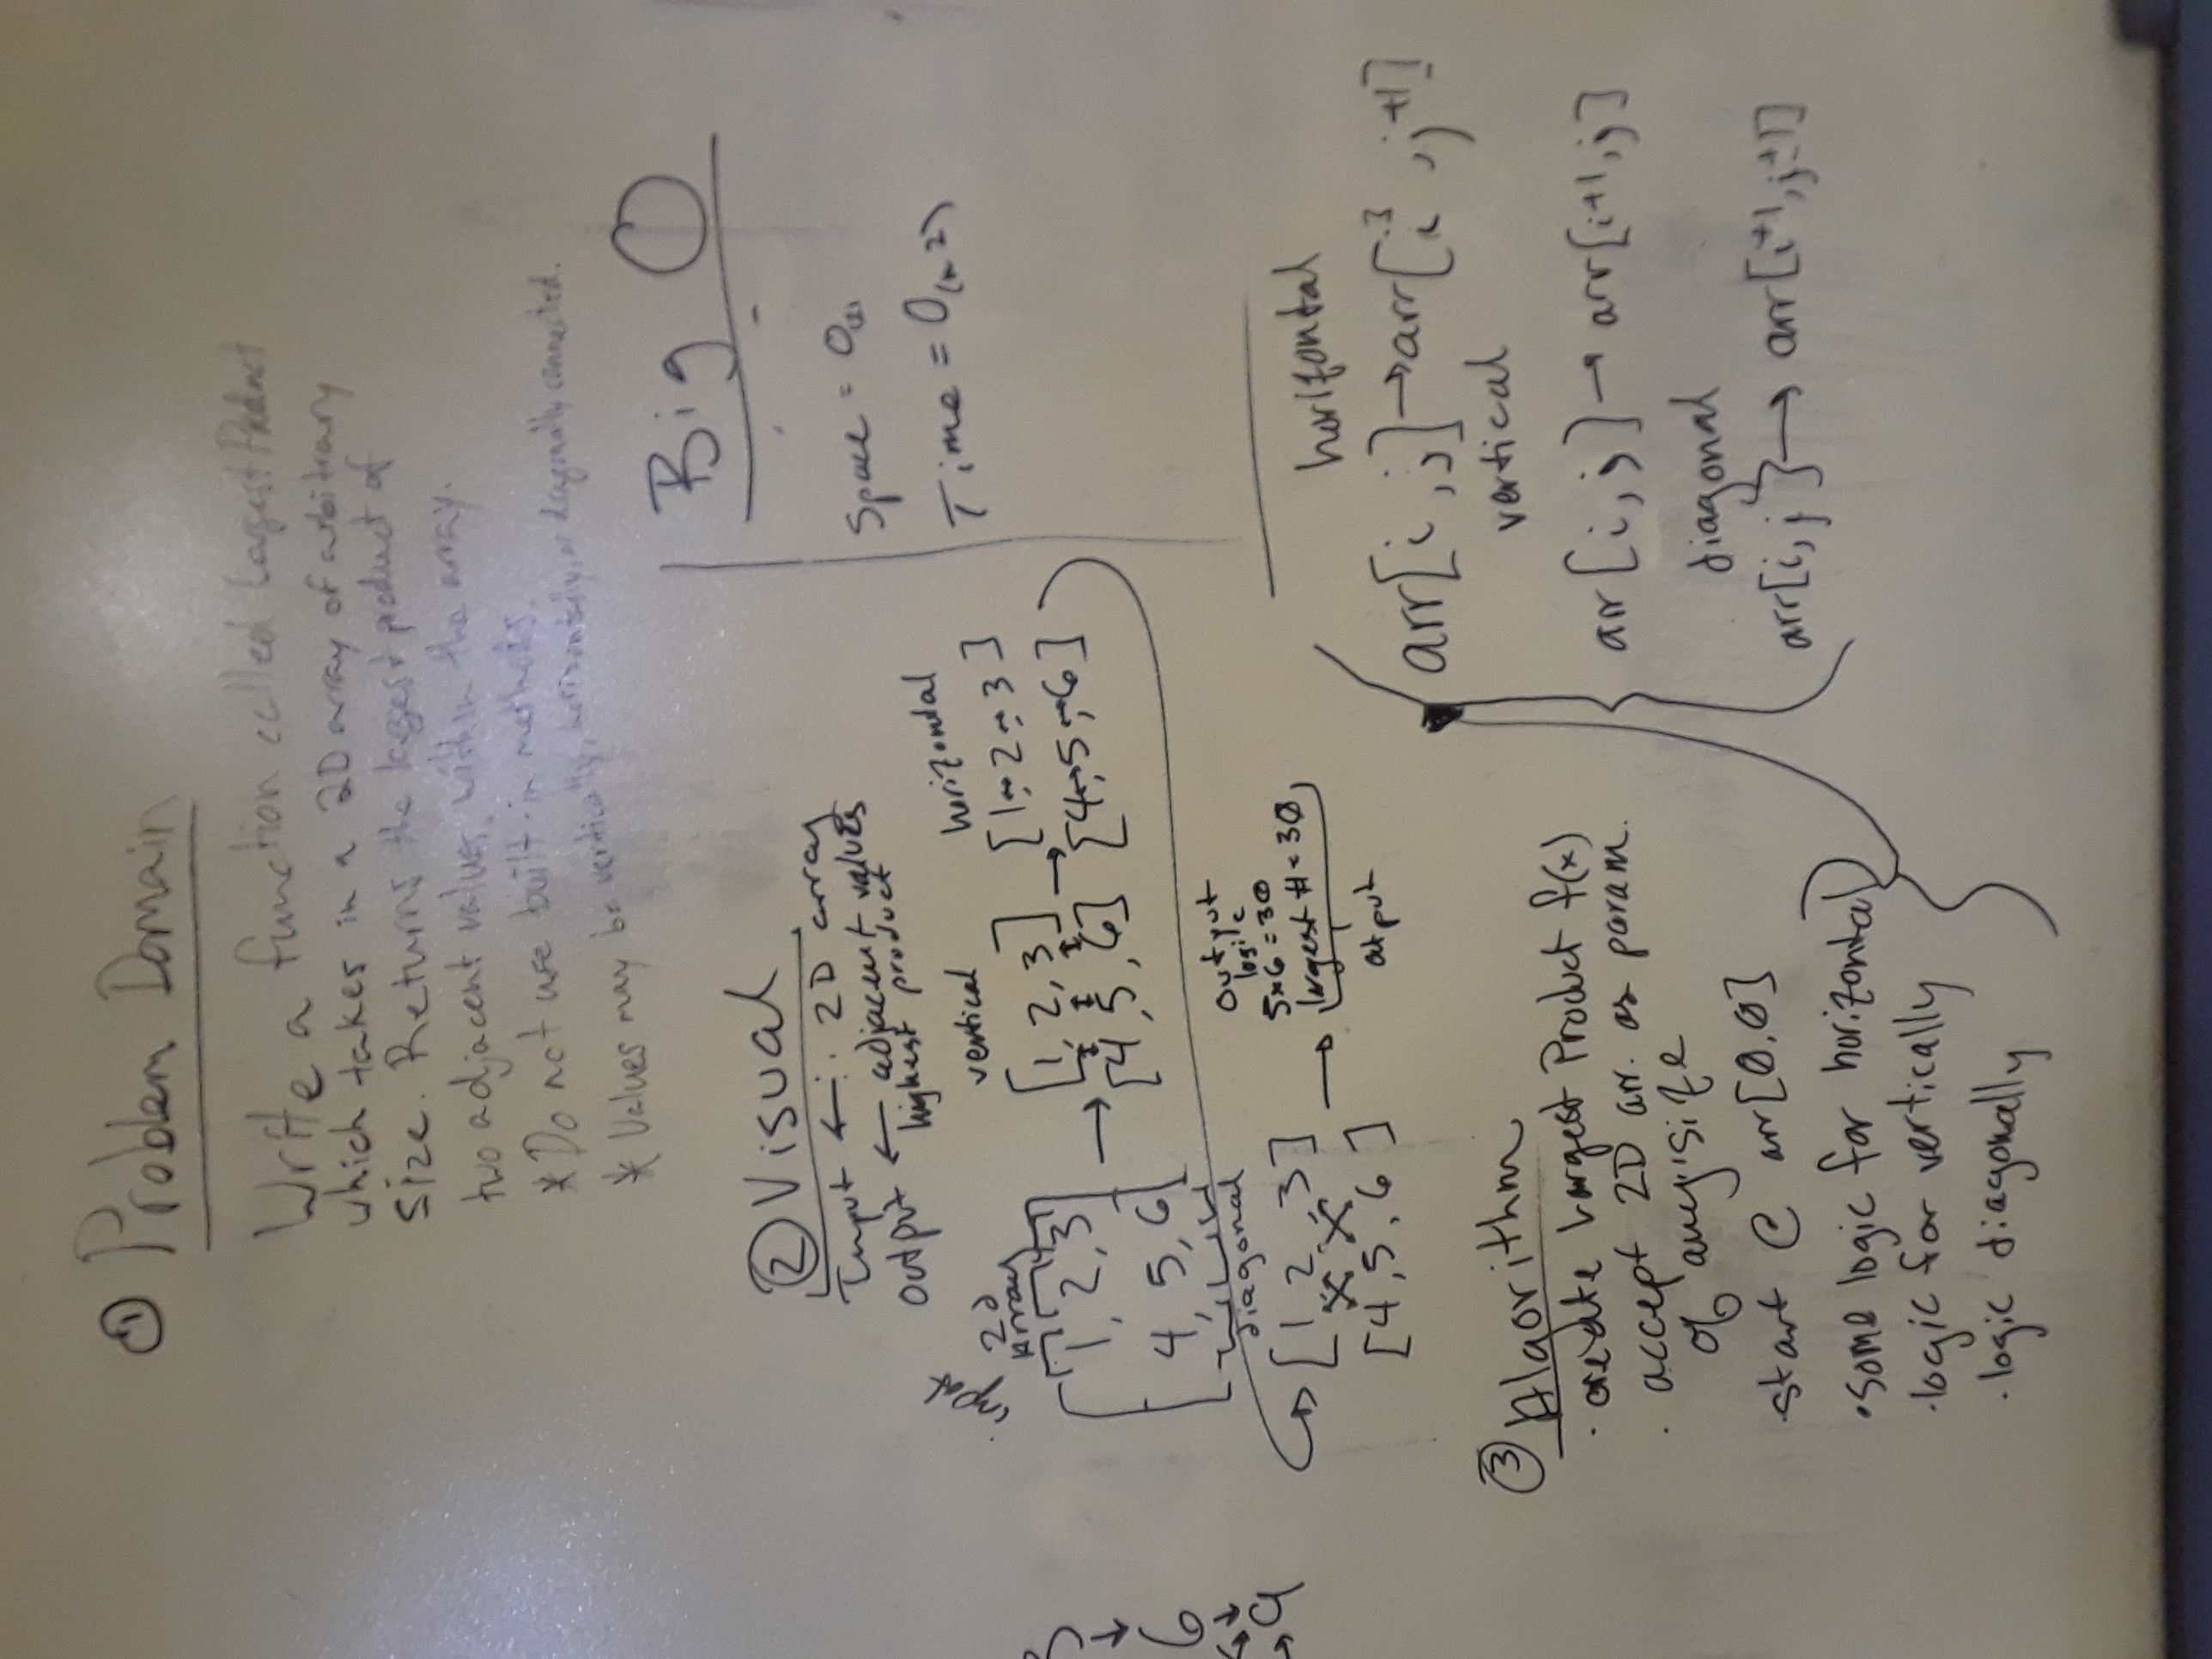 ① Problem Domain
Write a function called Largest Product
which takes in a 2D array of arbitrary
size. Returns the largest product of
two adjacent values within the array.
* Do not use built-in methods.
* Values may be vertically, horizontally, or diagonally connected.
Big O
Space =
Time = O(n2)
② Visual
Input ← : 2D array
Output ← adjacent values
highest product
input
2d
Array
1, 2, 3
4, 5, 6
vertical
[1, 2, 3]
[4, 5, 6]
horizontal
[1 2 3]
[4, 5, 6]
6
9
diagonal
[1, 2, 3]
[4, 5, 6]
Output
logic
5x6 = 30
largest # = 30
output
③ Algorithm
· create Largest Product f(x)
· accept 2D arr. as param.
of any size
· start @ arr[0,0]
· some logic for horizontal
· logic for vertically
· logic diagonally
horizontal
arr[i, j] → arr[i, j+1]
vertical
arr[i, j] → arr[i+1, j]
diagonal
arr[i, j] → arr[i+1, j±1]